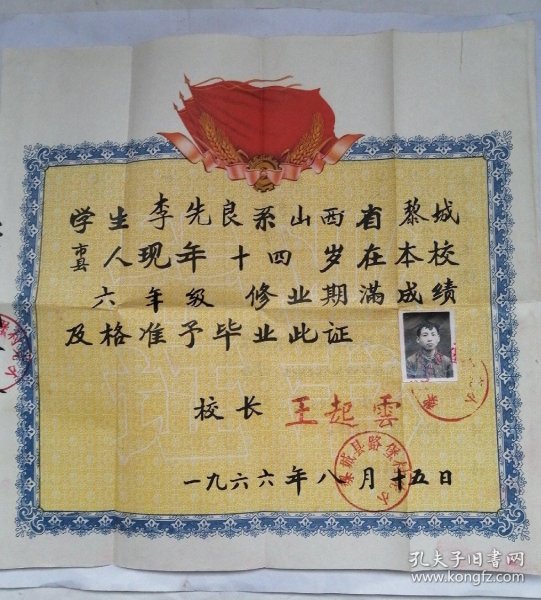 学生李先良系山西省黎城
市县人现年十四岁在本校
六年级修业期满成绩
及格准予毕业此证
校长 王起雲
一九六六年八月十五日
孔夫子旧书网
www.kongfz.com